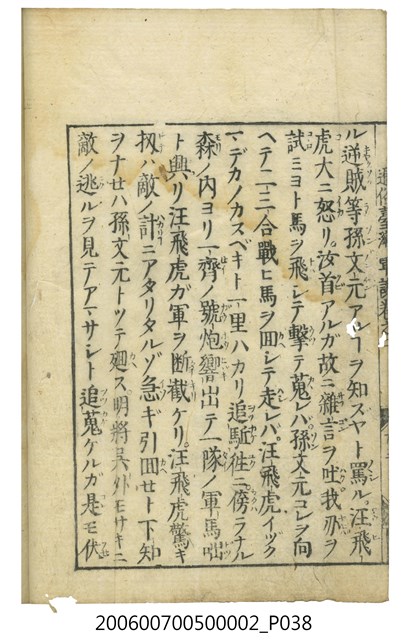 ル逆賊等孫文元アルヿヲ知スヤト罵ル汪飛
虎大ニ怒リ汝首アルガ故ニ雜言ヲ吐我刃ヲ
試ミヨト馬ヲ飛シテ擊テ蒐レバ孫文元コレヲ向
ヘテ二三合戰ヒ馬ヲ回シテ走レバ汪飛虎イヅク
マデカノカスベキト一里ハカリ追駈徃ニ傍ラナル
森ノ内ヨリ一齊ノ號炮響出テ一隊ノ軍馬咄
ト興リ汪飛虎ガ軍ヲ断截ケリ汪飛虎驚キ
扨ハ敵ノ計ニアタリタルゾ急ギ引回セト下知
ヲナセハ孫文元トツテ廻ス明將呉外モサキニ
敵ノ逃ルヲ見テアマサシト追蒐ケルガ是モ伏
200600700500002_P038